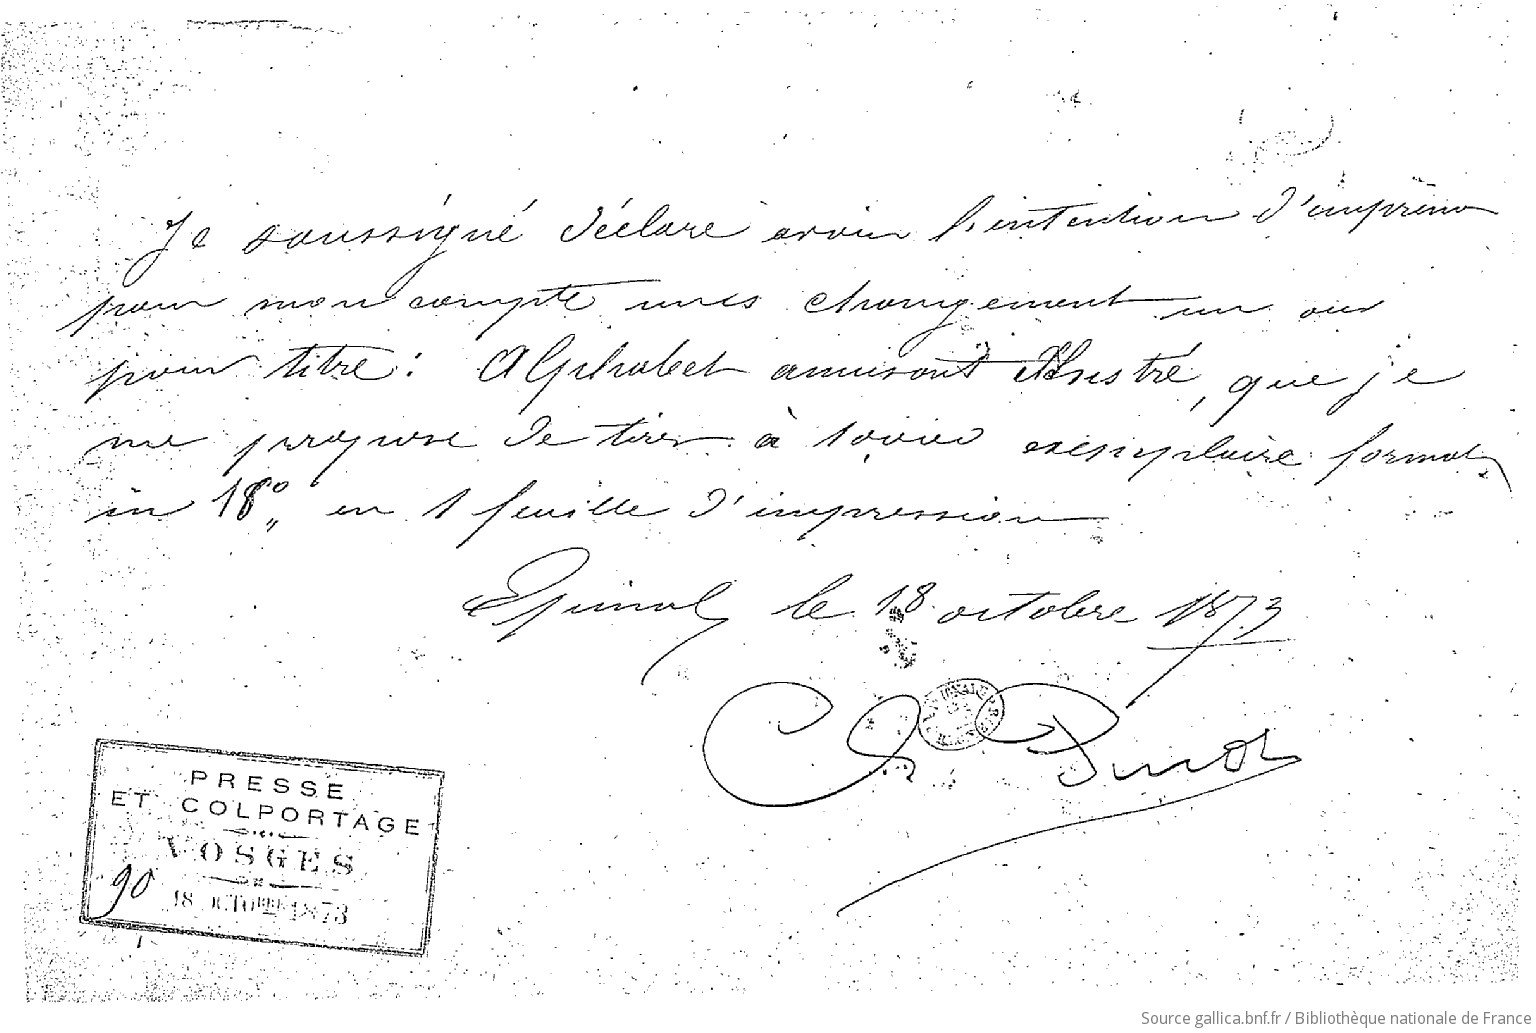 Je soussigné déclare avoir l'intention d'imprimer
pour mon compte sans changement un
pour titre : Alphabet amusant illustré, que je
me propose de tirer à exemplaire format
in 18° en 1 feuille d'impression
Epinal le 18 octobre 1873
Ch Pinot
PRESSE
ET COLPORTAGE
VOSGES
90
18 OCTOBRE 1873
Source gallica.bnf.fr / Bibliothèque nationale de France